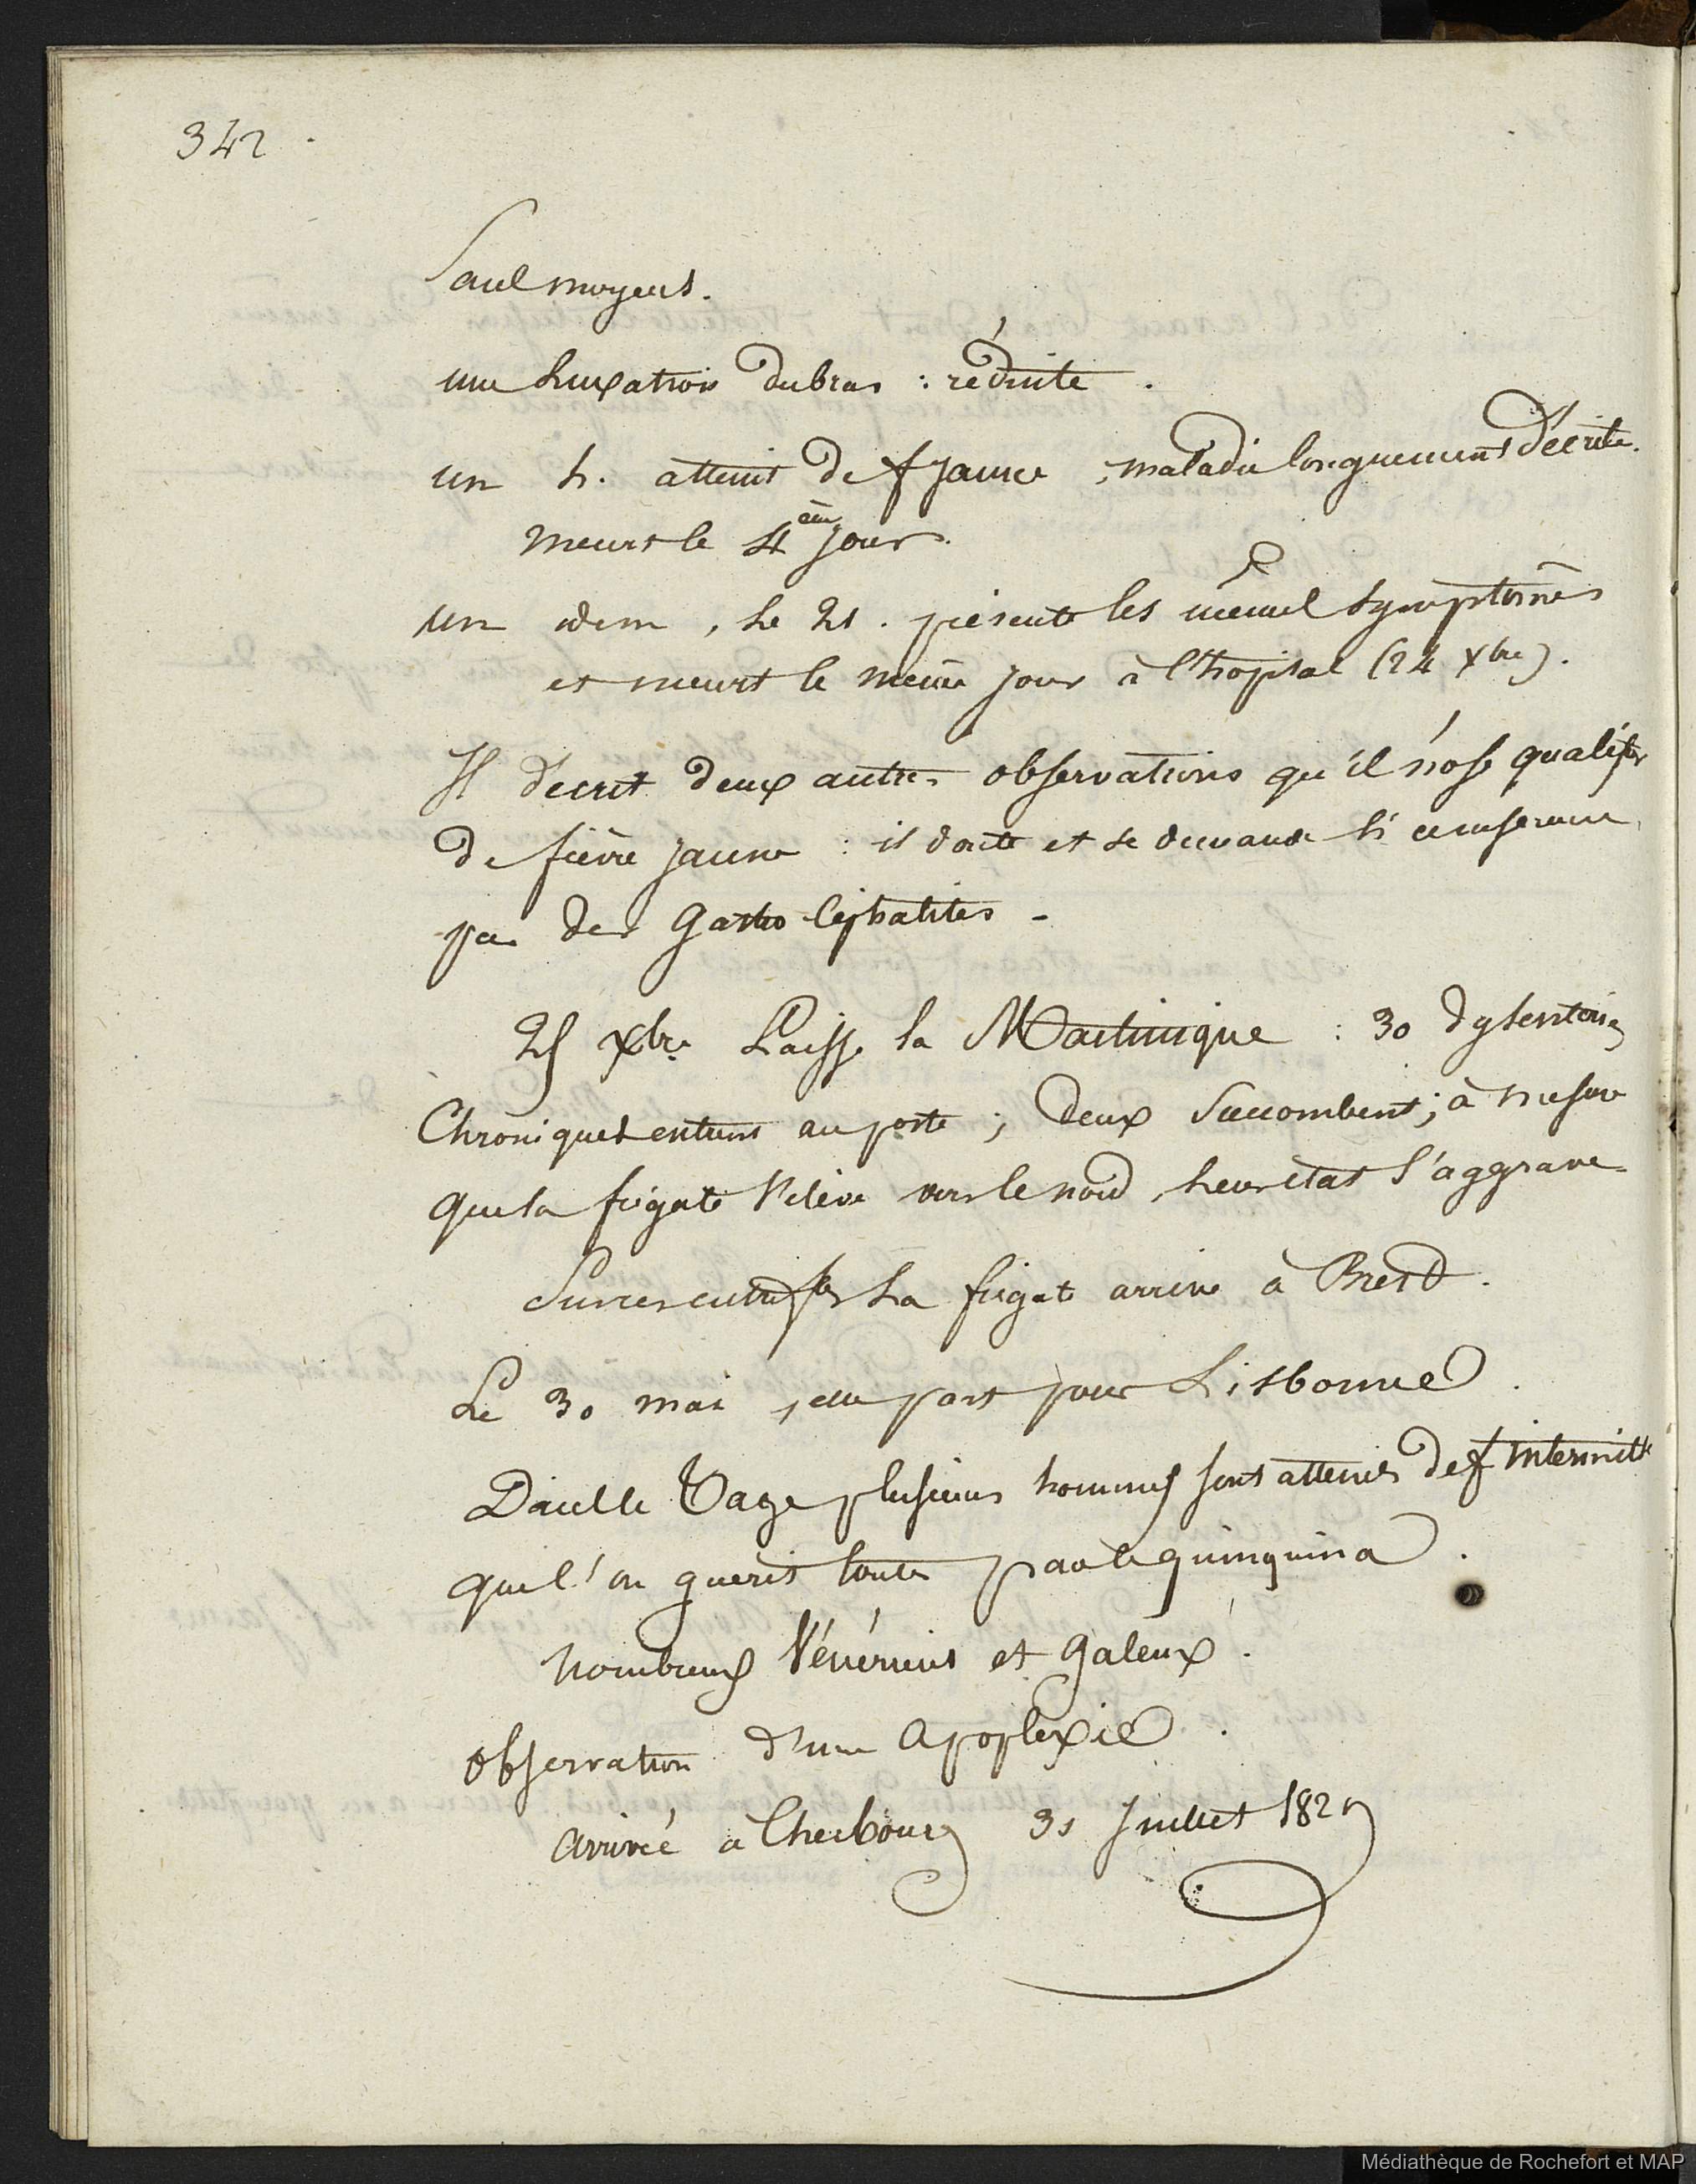 342
Seul moyens.
une Luxation du bras : réduite.
un h. atteint de f jaune, maladie longuement décrite.
meurt le 4ème jour.
un idem, le 21. présente les mêmes symptômes
et meurt le même jour à l'hopital (24 xbre).
Il decrit deux autres observations qu'il n'ose qualifier
de fièvre jaune : il doute et se demande si ce ne serait
pas des Gastro Céphalites -
25 xbre Laisse la Martinique : 30 dysenteries
Chroniques entrent au poste ; deux succombent ; à mesure
que la frégate s'élève vers le nord, leur état s'aggrave
Sur ces entrefes La frégate arrive à Brest.
Le 30 mai, elle part pour Lisbonne.
Dans le Tage plusieurs hommes sont atteints de f intermitte
que l'on guérit toutes par le quinquina.
Nombreux Vénériens et galeux.
Observation d'une Apoplexie.
Arrivée à Cherbourg 31 Juillet
Médiathèque de Rochefort et MAP